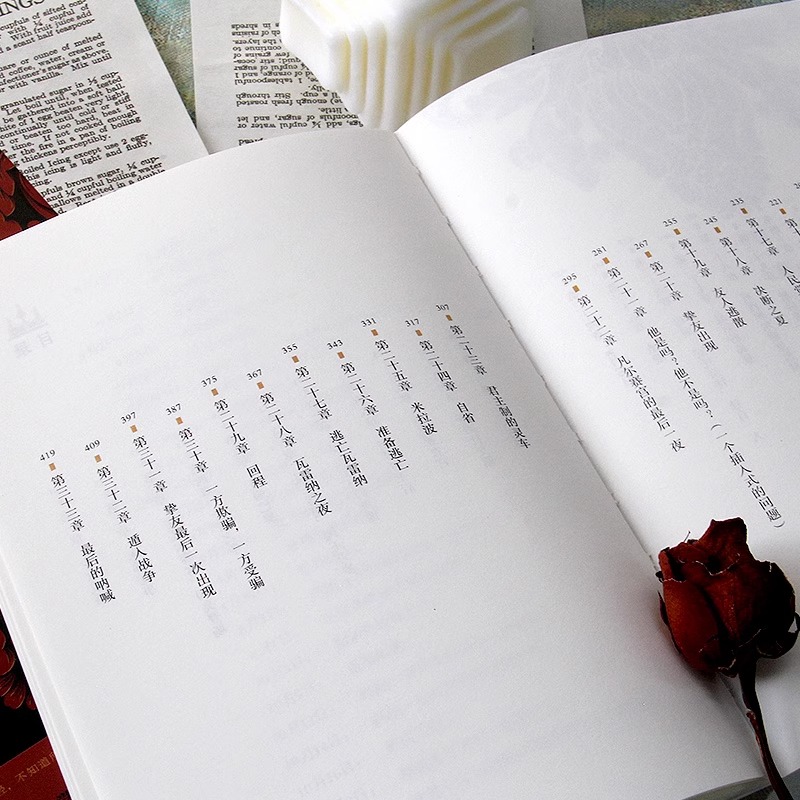 INGS
cupfuls of sifted con-
¼ cupful of
With fruit juice add
a scant half teaspoon-
or ounce of melted
coffee, water, cream or
with vanilla. Mix until
granulated sugar in ½ cup
Let boil until when
be gathered into a soft ball.
of 1 egg beaten very light
continually until cold or stiff
or beaten too hard, beat in
time. If not cooked enough
the fire in a pan of boiling
thickens perceptibly.
Boiled Icing except use 2 egg-
Icing is light and fluffy,
brown sugar, ¼ cup-
¼ cupful boiling water
melted in a double
221
第十
235 第十七章 人民
245 第十八章 决断之夏
255 第十九章 友人逃散
267 第二十章 挚友出现
281 第二十一章 他是吗？他不是吗？（一个插入式的问题）
295 第二十二章 凡尔赛宫的最后一夜
307 第二十三章 君主制的灵车
317 第二十四章 自省
331 第二十五章 米拉波
343 第二十六章 准备逃亡
355 第二十七章 逃亡瓦雷纳
367 第二十八章 瓦雷纳之夜
375 第二十九章 回程
387 第三十章 一方欺骗，一方受骗
397 第三十一章 挚友最后一次出现
409 第三十二章 遁入战争
419 第三十三章 最后的呐喊
不知道